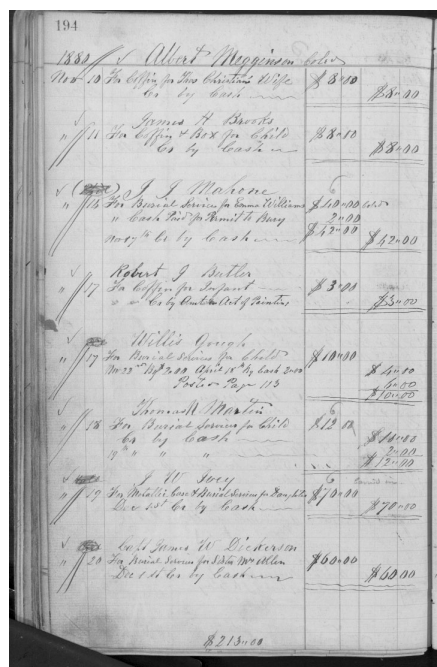 194
1880 Albert Megginson Cold
Nov 10 For Coffin for Thos Christians Wife $8"00
Cr by Cash $8"00
James A Brooks
" 11 For Coffin & Box for Child $8"00
Cr by Cash $8"00
J J Mahone
" 16 For Burial Service for Emma Williams $40"00 Cold
" Cash Paid for Permit to Bury 2"00
$42"00
Nov 17th Cr by Cash $42"00
Robert J Butler
" 17 For Coffin for Infant $3"00
" " Cr by Amt on Act of Painting $3"00
Willis Gough
" 17 For Burial Service for Child $10"00
Nov 22nd By 2"00 April 18th By Cash 2"00 $4"00
Posted Page 113 6"00
$10"00
Thomas Martin
" 18 For Burial Service for Child $12"00
Cr by Cash $10"00
19th " " " 2"00
$12"00
J W Ivey
" 19 For Metallic Case & Burial Service for Daughter $70"00
Dec 1st Cr by Cash $70"00
Capt James W Dickerson
" 20 For Burial Service for Sister Mrs Allen $60"00
Dec 1st Cr by Cash $60"00
$213"00